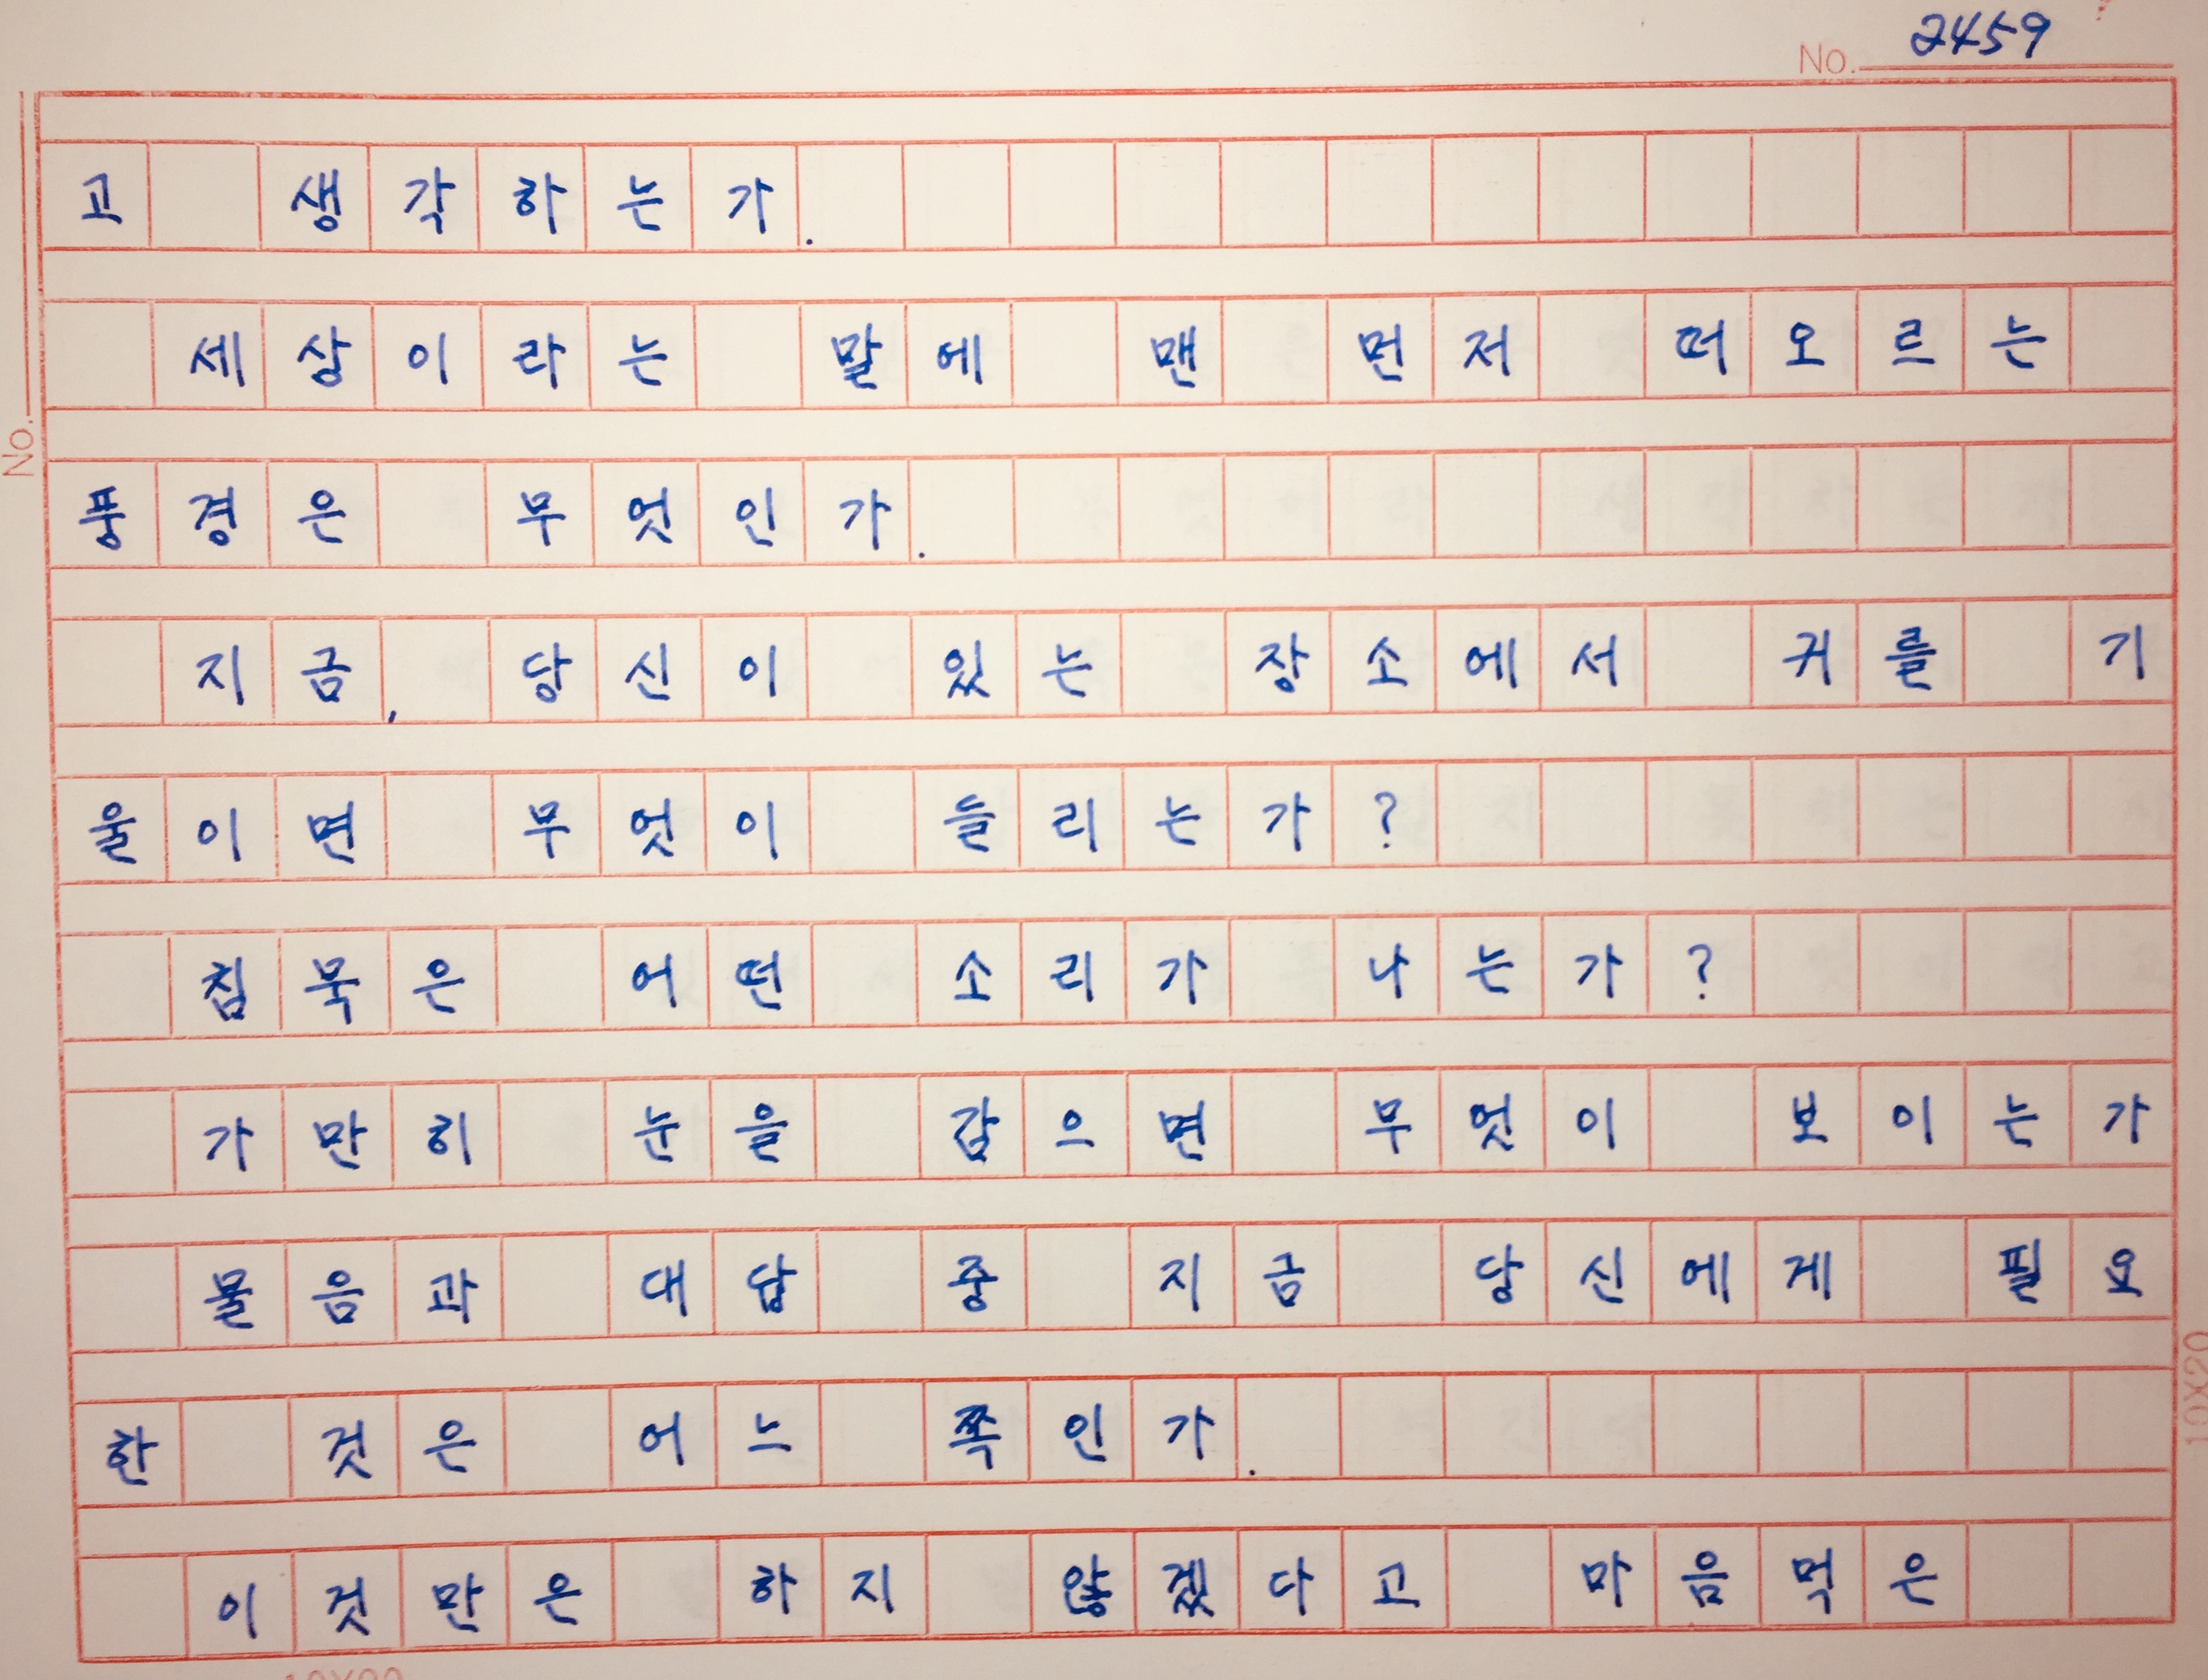 No. 2459
고 생각하는가.
세상이라는 말에 맨 먼저 떠오르는
풍경은 무엇인가.
지금, 당신이 있는 장소에서 귀를 기
울이면 무엇이 들리는가?
침묵은 어떤 소리가 나는가?
가만히 눈을 감으면 무엇이 보이는가
물음과 대답 중 지금 당신에게 필요
한 것은 어느 쪽인가.
이것만은 하지 않겠다고 마음먹은
No.
10X20
10X20